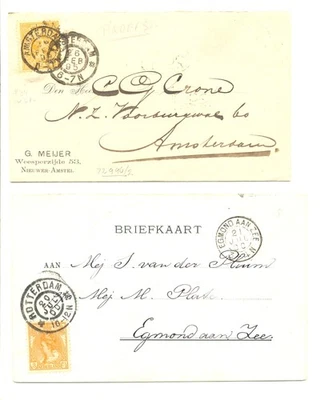 AMSTERDAM
6-7N
Den Heer C G Crone
N. Z. Voorburgwal 60
Amsterdam
G. MEIJER
Weesperzijde 53,
NIEUWER-AMSTEL
BRIEFKAART
EGMOND AAN ZEE
21
AAN Mej S. van der
Mej M. Plate
Egmond aan Zee
ROTTERDAM
10-12N